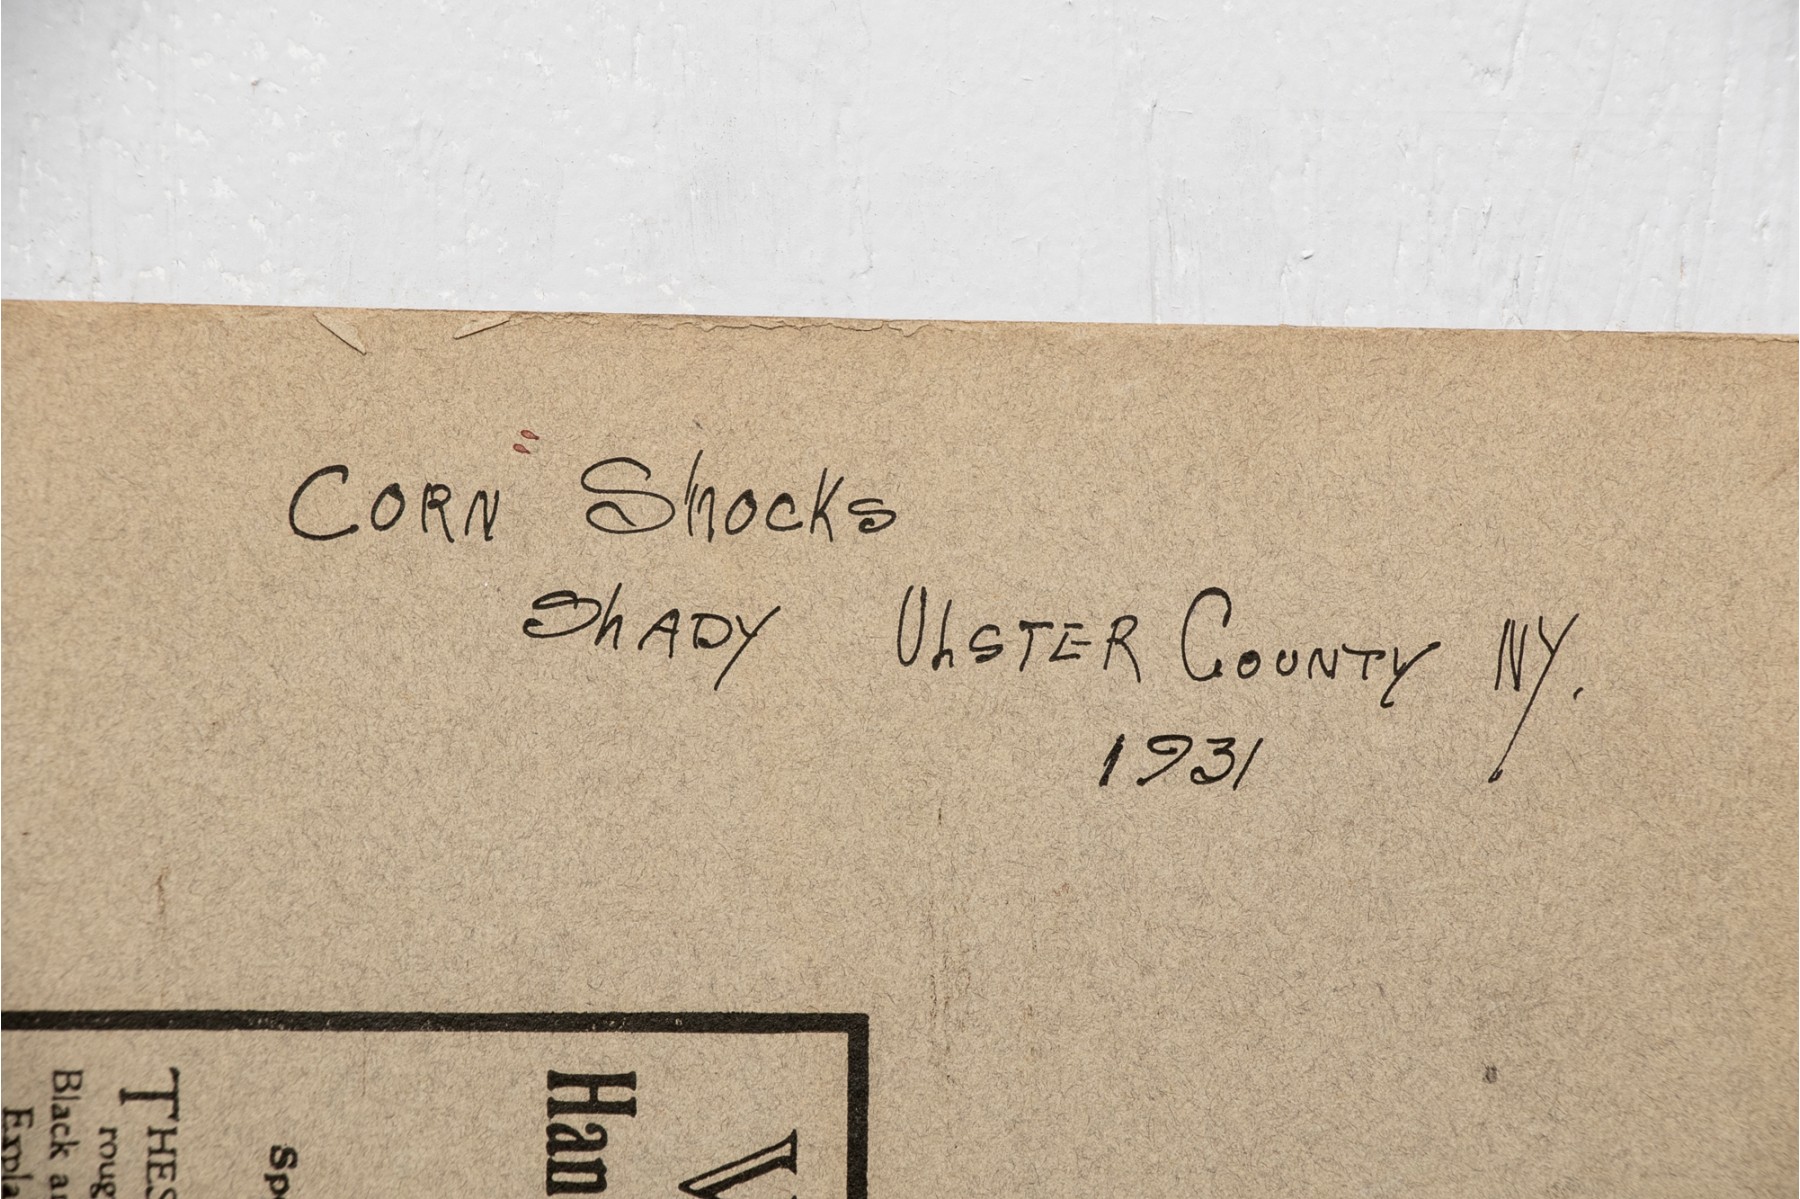 CORN SHOCKS
SHADY ULSTER COUNTY NY.
1931
Han
THES
roug
Black